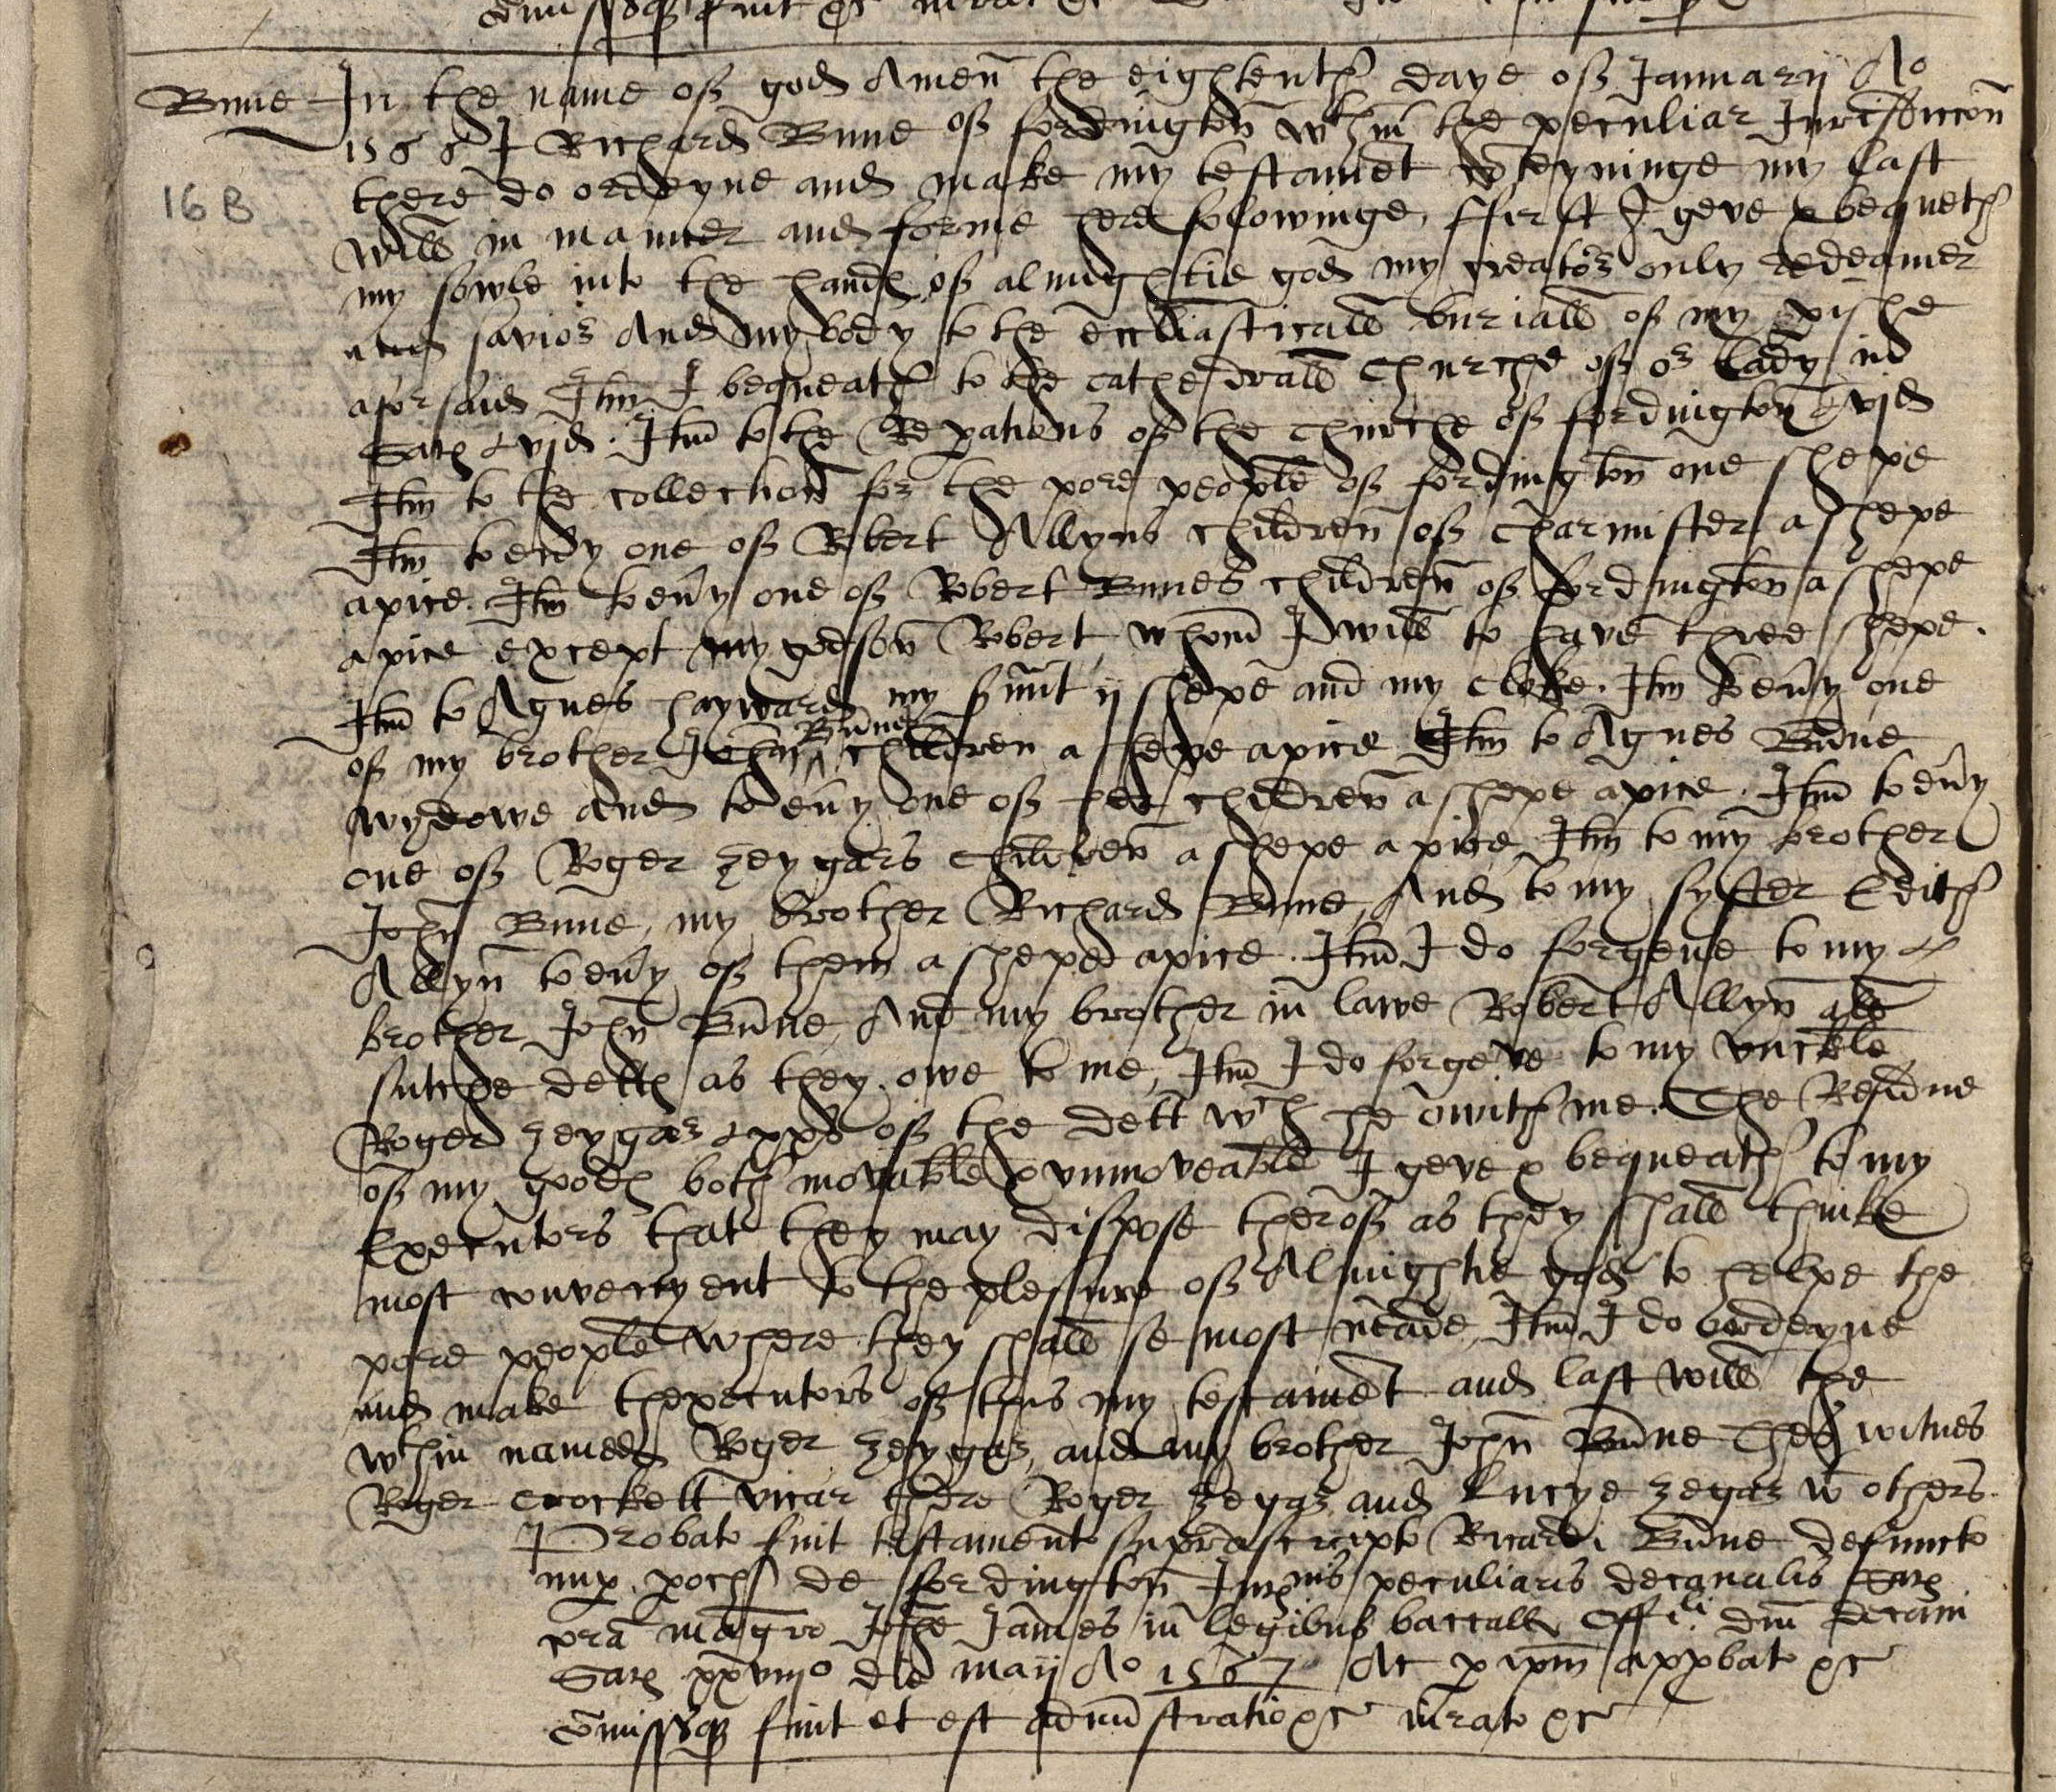 Bune In the name off god Amen the eightenth daye off Januarij Ao
1566 I Richard Bune off fordington wthin the peculiar Jurisdiccon
there do ordeyne and make my testament conteyninge my last
will in manner and forme here folowinge, ffirst I geve & bequeth
16B
my sowle into the hands off almightie god my creator only redeamer
and savior And my body to the ecclliasticall buriall of my pishe
aforsaid Itm I bequeath to the cathedrall Churche off or lady in
Sar vjd. Itm to the Repations off the churche off fordington vjd
Itm to the collection for the pore people off fordington one shepe
Itm to evy one off Robert Allyns children off Charmister a shepe
apice. Itm to evy one off Robert Bunes children off fordington a shepe
apice except my godson Robert, whom I will to have three shepe.
Itm to Agnes hayward my svnt ij shepe and my cloke. Itm to evy one
off my brother John Bunes children a shepe apice Itm to Agnes Bune
wydowe and to evy one off her children a shepe apice. Itm to evy
one off Roger Zeygars children a shepe apice, Itm to my brother
John Bune, my brother Richard Bune, And to my syster Edith
Allyn to evy off them a shepe apice. Itm I do forgeve to my
brother John Bune, And my brother in lawe Robert Allyn all
sutche detts as they owe to me, Itm I do forgeve to my vnckle
Roger Zeygar xxs off the dett wch he owith me. The Residue
off my goods both movable & vnmoveable I geve & bequeath to my
Executors that they may dispose theroff as they shall thinke
most convenyent to the plesure off Almightie god to helpe the
pore people where they shall se most neade, Itm I do ordeyne
and make thexecutors off this my testament and last will the
wthin named Roger Zeygar, and my brother John Bune Thes witnes
Roger Crockett vicar there Roger Zegar and Lucye Zegar wt others.
Probato fuit testament suprascripto Ricardi Bune defuncto
nup. poch de fordington Jurisnis peculiaris decanalis Sar
cora magro Johe James in legibus baccall Offili dni decani
Sar xxviijo die maij Ao 1567 Ac p ipm approbato &c
Comissaq fuit et est admistratio &c iurato &c